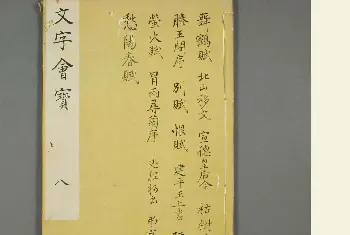 舞鶴賦 北山移文 宣德皇后令 枯樹
滕王閣序 別賦 恨賦 建平王上書
螢火賦 冒雨尋菊序
愁陽春賦
文字會寶 八